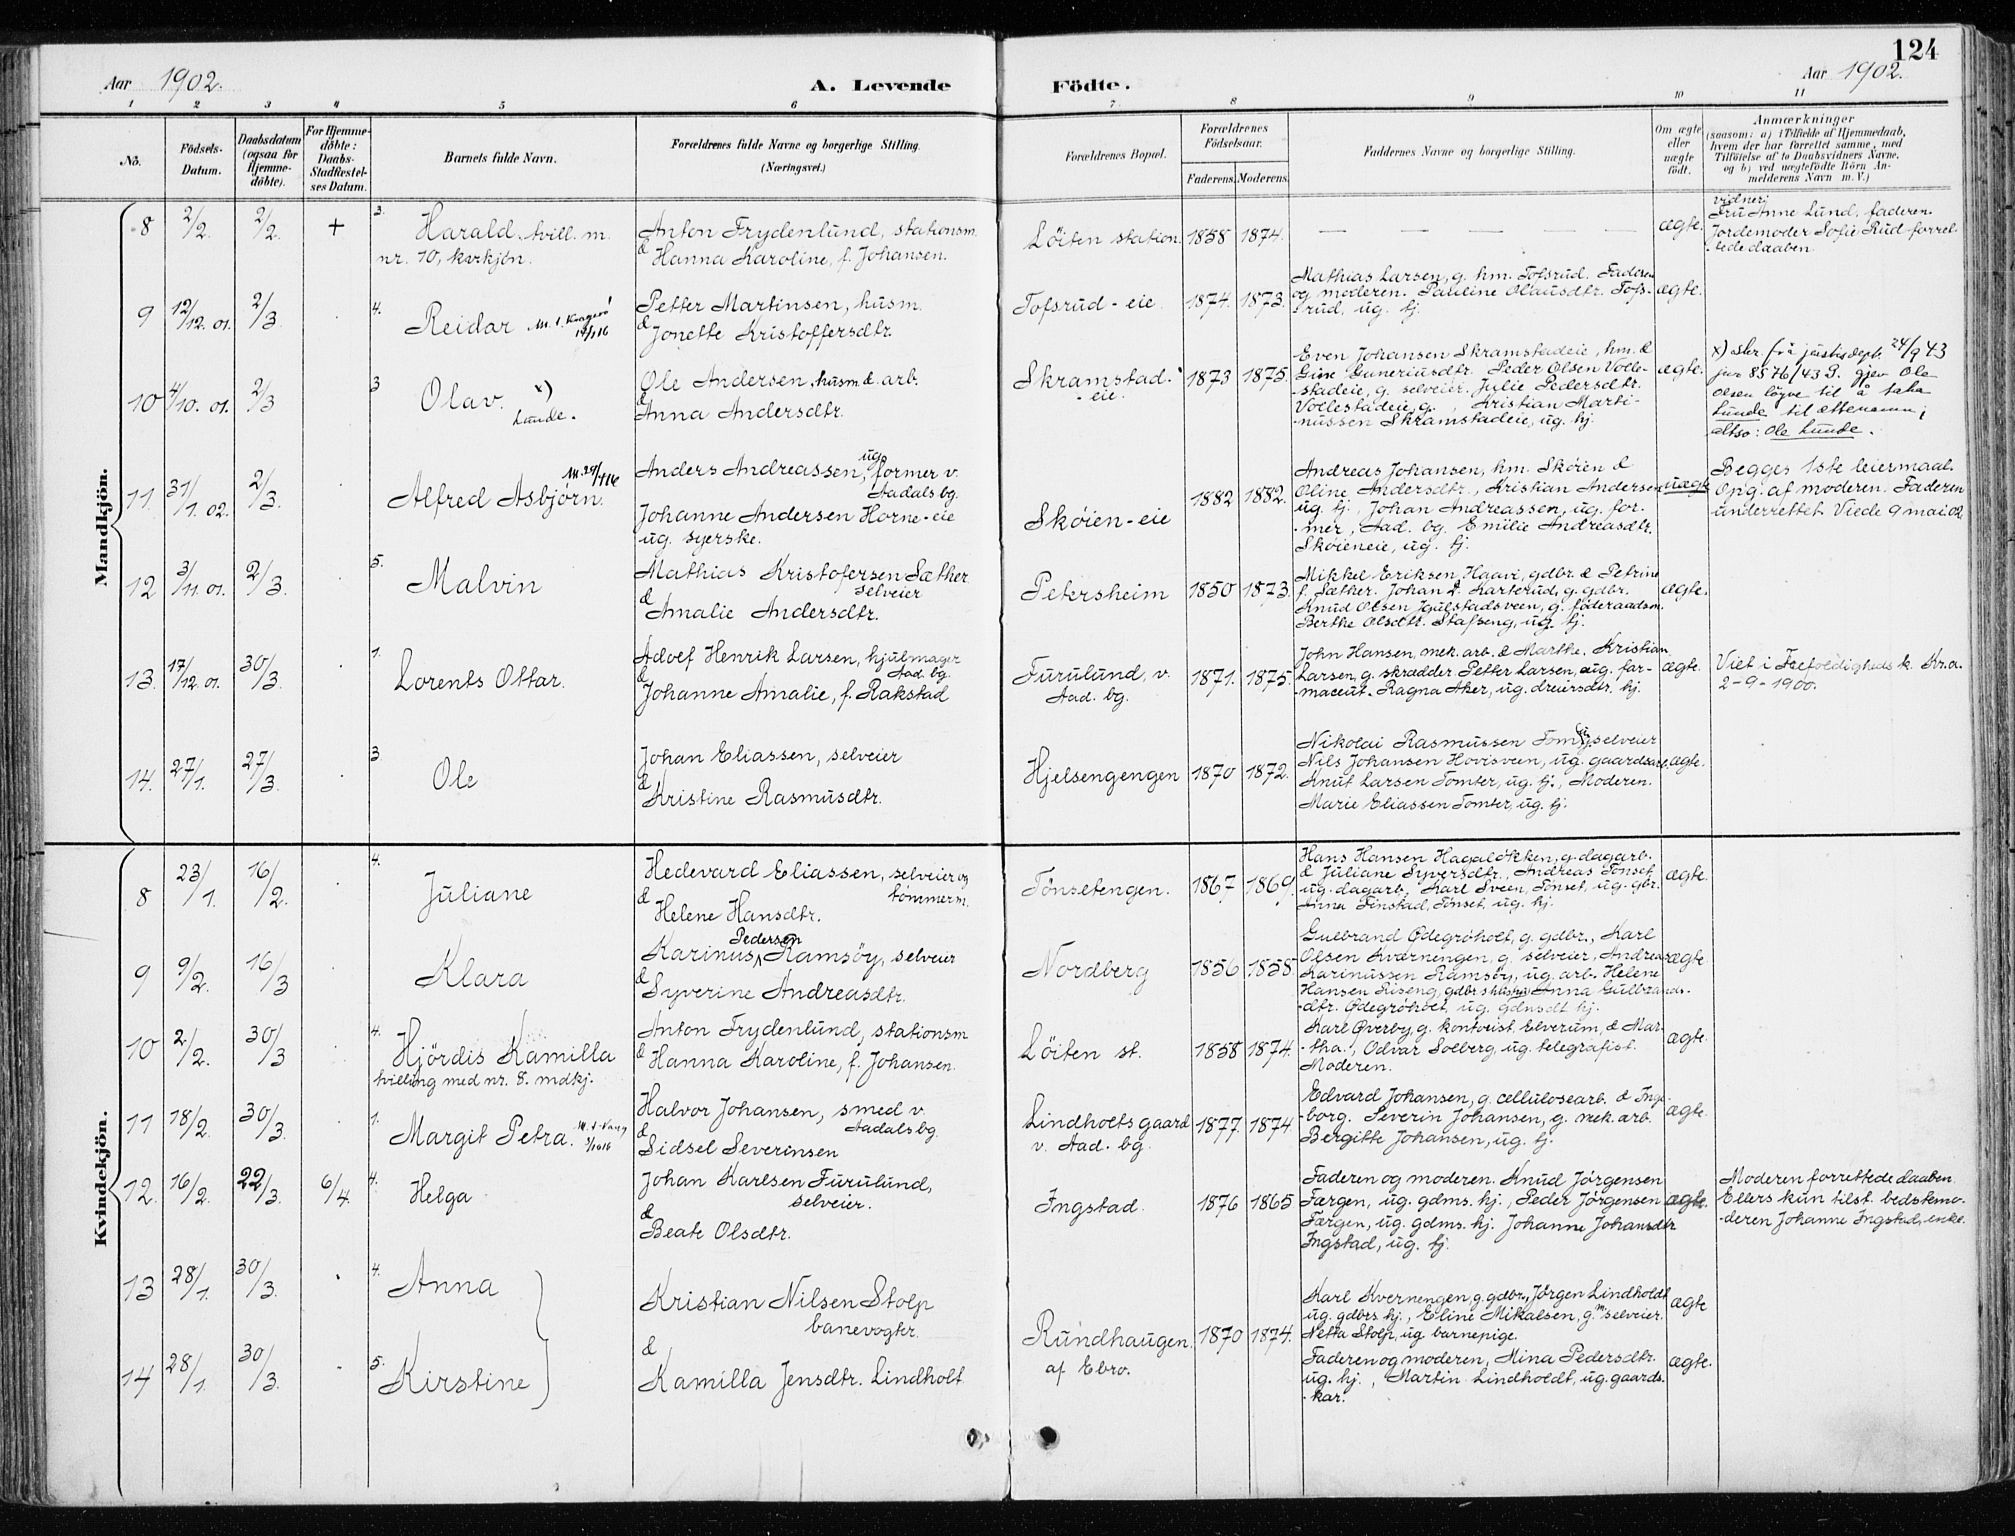 124
Aar 1902.
A. Levende Födte.
Aar 1902.
1 2 3 4 5 6 7 8 9 10 11
No.
Födsels-
Datum.
Daabsdatum
(ogsaa for
Hjemme-
döbte).
For Hjemme-
döbte:
Daabs-
Stadfæstel-
ses Datum.
Barnets fulde Navn.
Forældrenes fulde Navne og borgerlige Stilling.
(Næringsvei.)
Forældrenes Bopæl.
Forældrenes
Födselsaar.
Faderens. Moderens.
Faddernes Navne og borgerlige Stilling.
Om ægte
eller
uægte
födt.
Anmærkninger
(saasom: a) i Tilfælde af Hjemmedaab,
hvem der har forrettet samme, med
Tilföielse af to Daabsvidners Navne.
og b) ved uægtefödte Börn An-
melderens Navn m. V.)
Mandkjön.
8 2/2. 2/2. + 3. Harald. tvill. m.
nr. 10, kvkjön.
Anton Frydenlund, stationsm.
& Hanna Karoline, f. Johansen.
Löiten station. 1858 1874. — — — — — ægte.
vidner:
Fru Anne Lund, faderen.
Jordemoder Sofie Rud forret-
tede daaben.
9 12/12. 01. 2/3. . 4. Reidar
Petter Martinsen, husm.
& Jonette Kristoffersdtr.
Tofsrud-eie. 1874. 1873.
Mathias Larsen, g. hm. Tofsrud. Faderen
og moderen. Pauline Olausdtr. Tofs-
rud, ug. tj.
ægte.
10 4/10. 01. 2/3 . 3 Olav. x)
Lunde.
Ole Andersen, husm. & arb.
& Anna Andersdtr.
Skramstad-
-eie. 1873 1875.
Even Johansen Skramstadeie, hm. &
Gine Guneriusdtr. Peder Olsen Volle-
stadeie, g. selveier. Julie Pedersdtr.
Vollestadeie, g. Kristian Marti-
nussen Skramstadeie, ug. tj.
ægte.
x) skr. frå justisdept. 24/9 43
jnr 8576/43 P. gjev Ole
Olsen löyve til å taka
Lunde til ættenamn,
altso: Ole Lunde.
11 31/1. 02. 2/3. Alfred Asbjørn.
Anders Andreassen, ug. former v.
Aadals bg.
Johanne Andersen Horne-eie
ug. syerske.
Skóien-eie 1882 1882.
Andreas Johansen, hm. Skóien &
Oline Andersdtr., Kristian Andersen
ug. tj., Johan Andreassen, ug. for-
mer, Aad. bg. Emilie Andreasdtr.
Skóieneie, ug. tj.
uægte
Begges 1ste leiermaal.
Opg. af moderen. Faderen
underrettet. Viede 9 mai 02
12 3/11. 01. 2/3. . 5. Malvin
Mathias Kristofersen Sæther
selveier
& Amalie Andersdtr.
Petersheim 1850 1873.
Mikkel Eriksen Haavi, gdbr. & Petrine
f. Sæther. Johan L. Karterud, g. gdbr.
Knud Olsen Hjulstadsveen, g. föderaadsm.
Berthe Olsdtr. Stafseng, ug. tj.
ægte.
13. 17/12. 01. 30/3. . 1. Lorents Ottar.
Adolf Henrik Larsen, hjulmager
Aad. bg.
& Johanne Amalie, f. Rakstad
Furulund, v.
Aad. bg. 1871. 1875.
John Hansen, mek. arb. & Marthe, Kristian
Larsen, g. skrædder. Petter Larsen, ug. far-
maceut. Ragna Aker, ug. dreiersdtr. hj.
ægte.
Viet i Trefoldigheds k. Kr.a.
2-9-1900.
14. 27/1. 27/3. . 3 Ole
Johan Eliassen, selveier
& Kristine Rasmusdtr.
Hjelsengengen 1870 1872.
Nikolai Rasmussen Tomt. g. selveier
Nils Johansen Hovisveen, ug. gaardsarb.
Knut Larsen Tomter, ug. tj., Moderen.
Marie Eliassen Tomter, ug. tj.
ægte.
Kvindekjön.
8 23/1. 16/2. . 4. Juliane
Hedevard Eliassen, selveier og
tömmerm.
& Helene Hansdtr.
Tönsetengen. 1867 1869.
Hans Hansen Hagalökken, g. dagarb.
& Juliane Syversdtr., Andreas Tönset
ug. dagarb, Karl Sveen, Tönset, ug. gbr.
Anna Finstad, Tönset, ug. hj.
ægte.
9 9/2. 16/3 Klara
Karinus Pedersen Ramsöy, selveier
& Syverine Andreasdtr.
Nordberg 1856 1858.
Gulbrand Ödegröholt, g. gdbr., Karl
Olsen Kværnengen, g. selveier, Andreas
Karinussen Ramsöy, ug. arb. Helene
Hansen Riseng, gdbrs hustru Anna Gulbrands-
-dtr. Ödegröholt, ug. gdmsdt hj.
ægte.
10 2/2. 30/3 . 4. Hjördis Kamilla
tvilling med nr. 8. mdkj.
Anton Frydenlund, stationsm
& Hanna Karoline, f. Johansen.
Löiten st. 1858 1874.
Karl Överby, g. kontorist. Elverum, & Mar-
tha., Odvar Solberg, ug. telegrafist.
Moderen.
ægte.
11 18/2. 30/3. . 1. Margit Petra.
Halvor Johansen, smed v.
Aadals bg.
& Sidsel Severinsen
Lindholtsgaard
v. Aad. bg. 1877. 1874.
Edvard Johansen, g. cellulosearb. & Inge-
borg. Severin Johansen, g. mek. arb.
Bergitte Johansen, ug. tj.
ægte.
12. 16/2. 22/3. 6/4. 4. Helga
Johan Karlsen Furulund,
selveier.
& Beate Olsdtr.
Ingstad. 1876 1865
Faderen og moderen. Knud Jörgensen
Færgen, ug. gdms. hj., Peder Jörgensen
Færgen, ug. gdms. hj. Johanne Johansdtr
Ingstad, ug. tj.
ægte.
Moderen forrettede daaben.
Ellers kun tilst. bedstemo-
deren Johanne Ingstad, enke.
13 28/1. 30/3. . 4. Anna
Kristian Nilsen Stolp
banevogter.
&
Kamilla Jensdtr. Lindholt
Rundhaugen.
af Ebro. 1870 1874.
Karl Kvernengen, g. gdbr., Jörgen Lindholdt
ug. gdbrs hj., Eline Mikalsen, g. m. selveier.
Netta Stolp, ug. barnepige.
ægte
14 28/1. 30/3. . 5. Kirstine
Faderen og moderen, Mina Pedersdtr.
ug. hj., Martin Lindholdt, ug. gaards-
-kar.
ægte.